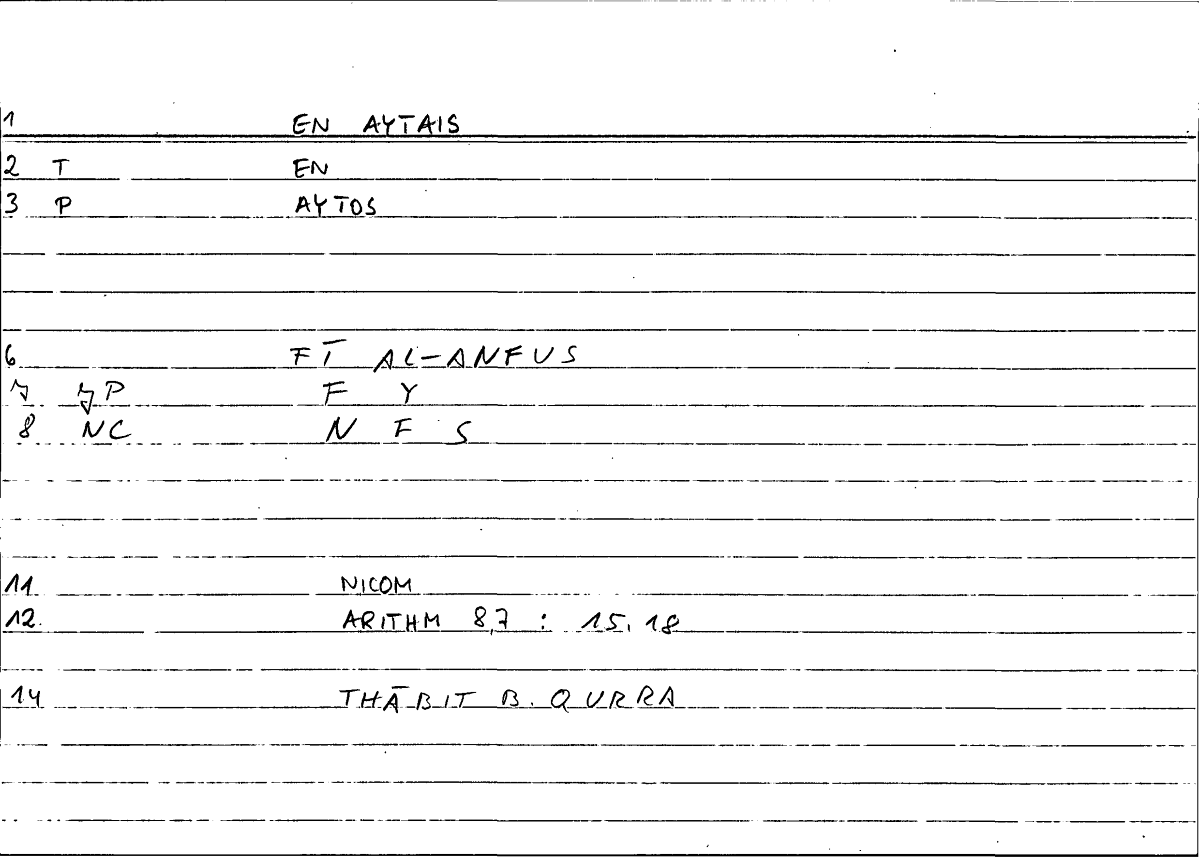 1 EN AYTAIS
2 T EN
3 P AYTOS
6 FĪ AL-ANFUS
7 P F Y
8 NC N F S
11 NICOM
12 ARITHM 8,7 : 15.18
14 THĀBIT B. QURRA